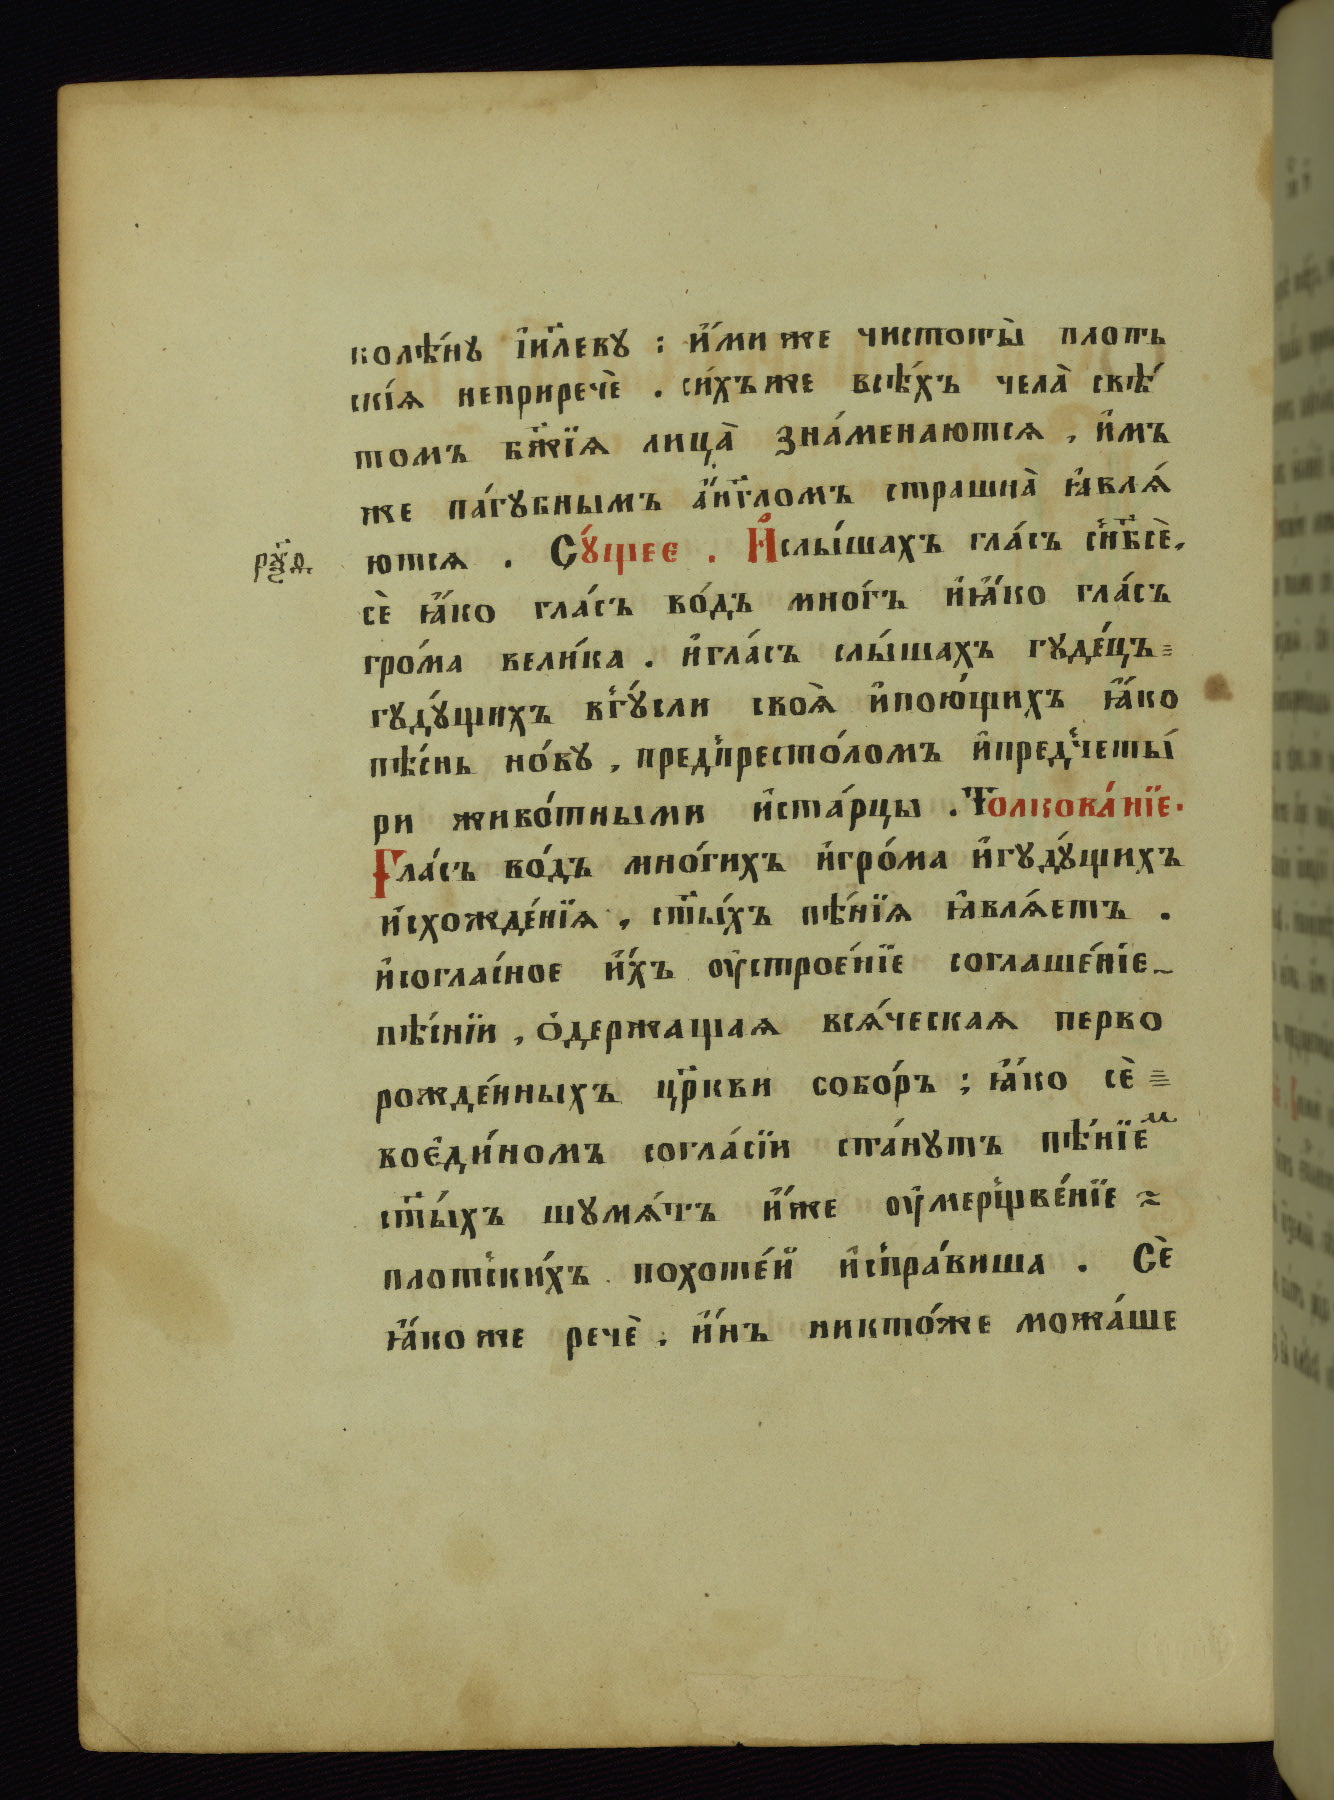 колѣ́нꙋ і҆и҃левꙋ : и҆́ми же чистоты̀ плоть
скі́ѧ неприречѐ . си́хъ же всѣ́хъ чела̀ свѣ́
томъ бж҃їѧ лица̀ зна́менаютсѧ , и҆́мъ
же па́гꙋбнымъ а҆́нг҃ломъ страшна̀ ꙗ҆влѧ́
ютсѧ . Сꙋ́щее . И҆слы́шахъ гла́съ с̾нб҃сѐ,
сѐ ꙗ҆́ко гла́съ во́дъ мно́гъ и҆ꙗ҆́ко гла́съ
гро́ма вели́ка . и҆гла́съ слы́шахъ гꙋде́цъ
гꙋдꙋ́щихъ в̾гꙋ́сли своѧ̀ и҆пою́щихъ ꙗ҆́ко
пѣ́снь но́вꙋ , пред̾престо́ломъ и҆пред̾четы́
ри живо́тными и҆ста́рцы . Толкова́нїе.
Гла́съ во́дъ мно́гихъ и҆гро́ма и҆гꙋдꙋ́щихъ
и҆схожде́нїѧ , ст҃ы́хъ пѣ́нїѧ ꙗ҆влѧ́етъ .
и҆согла́сное и҆́хъ ѹ҆строе́нїе соглаше́нїе
пѣ́снїи , ѻ҆держащаѧ всѧ́ческаѧ перво
рожде́нныхъ цр҃кви собо́ръ ; ꙗ҆́ко сѐ
воє҆ди́номъ согла́сїи ста́нꙋтъ пѣ́нїем
ст҃ы́хъ шꙋмѧ́тъ и҆́же ѹ҆мерщ̾ве́нїе
плот̾ски́хъ похоте́й и҆с̾пра́виша . Сѐ
ꙗ҆́коже речѐ . и҆́нъ никто́же можа́ше